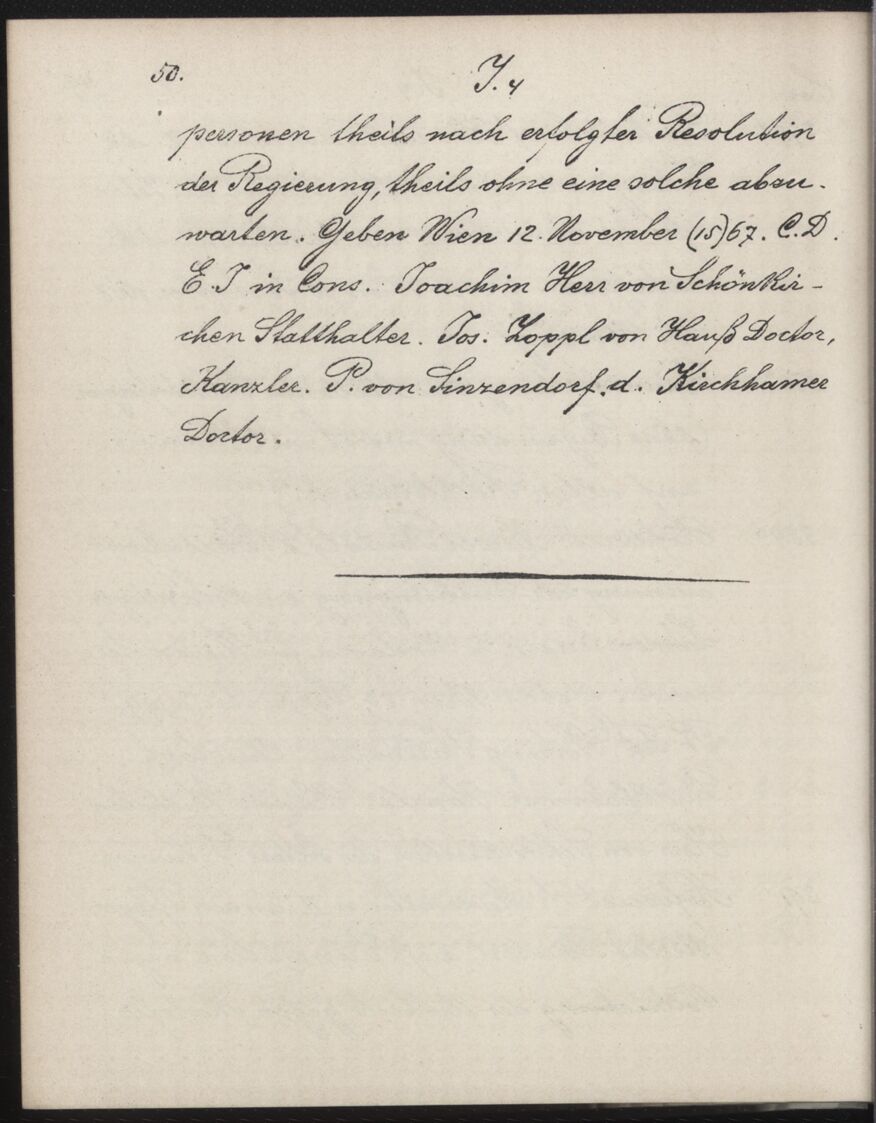 50.
J. 4
personen theils nach erfolgter Resolution
der Regierung, theils ohne eine solche abzu-
warten. Geben Wien 12. November (15)67. C. D.
E. J in Cons. Joachim Herr von Schönkir-
chen Statthalter. Jos. Zoppl von Hauß Doctor,
Kanzler. P. von Sinzendorf. d. Kirchhamer
Doctor.